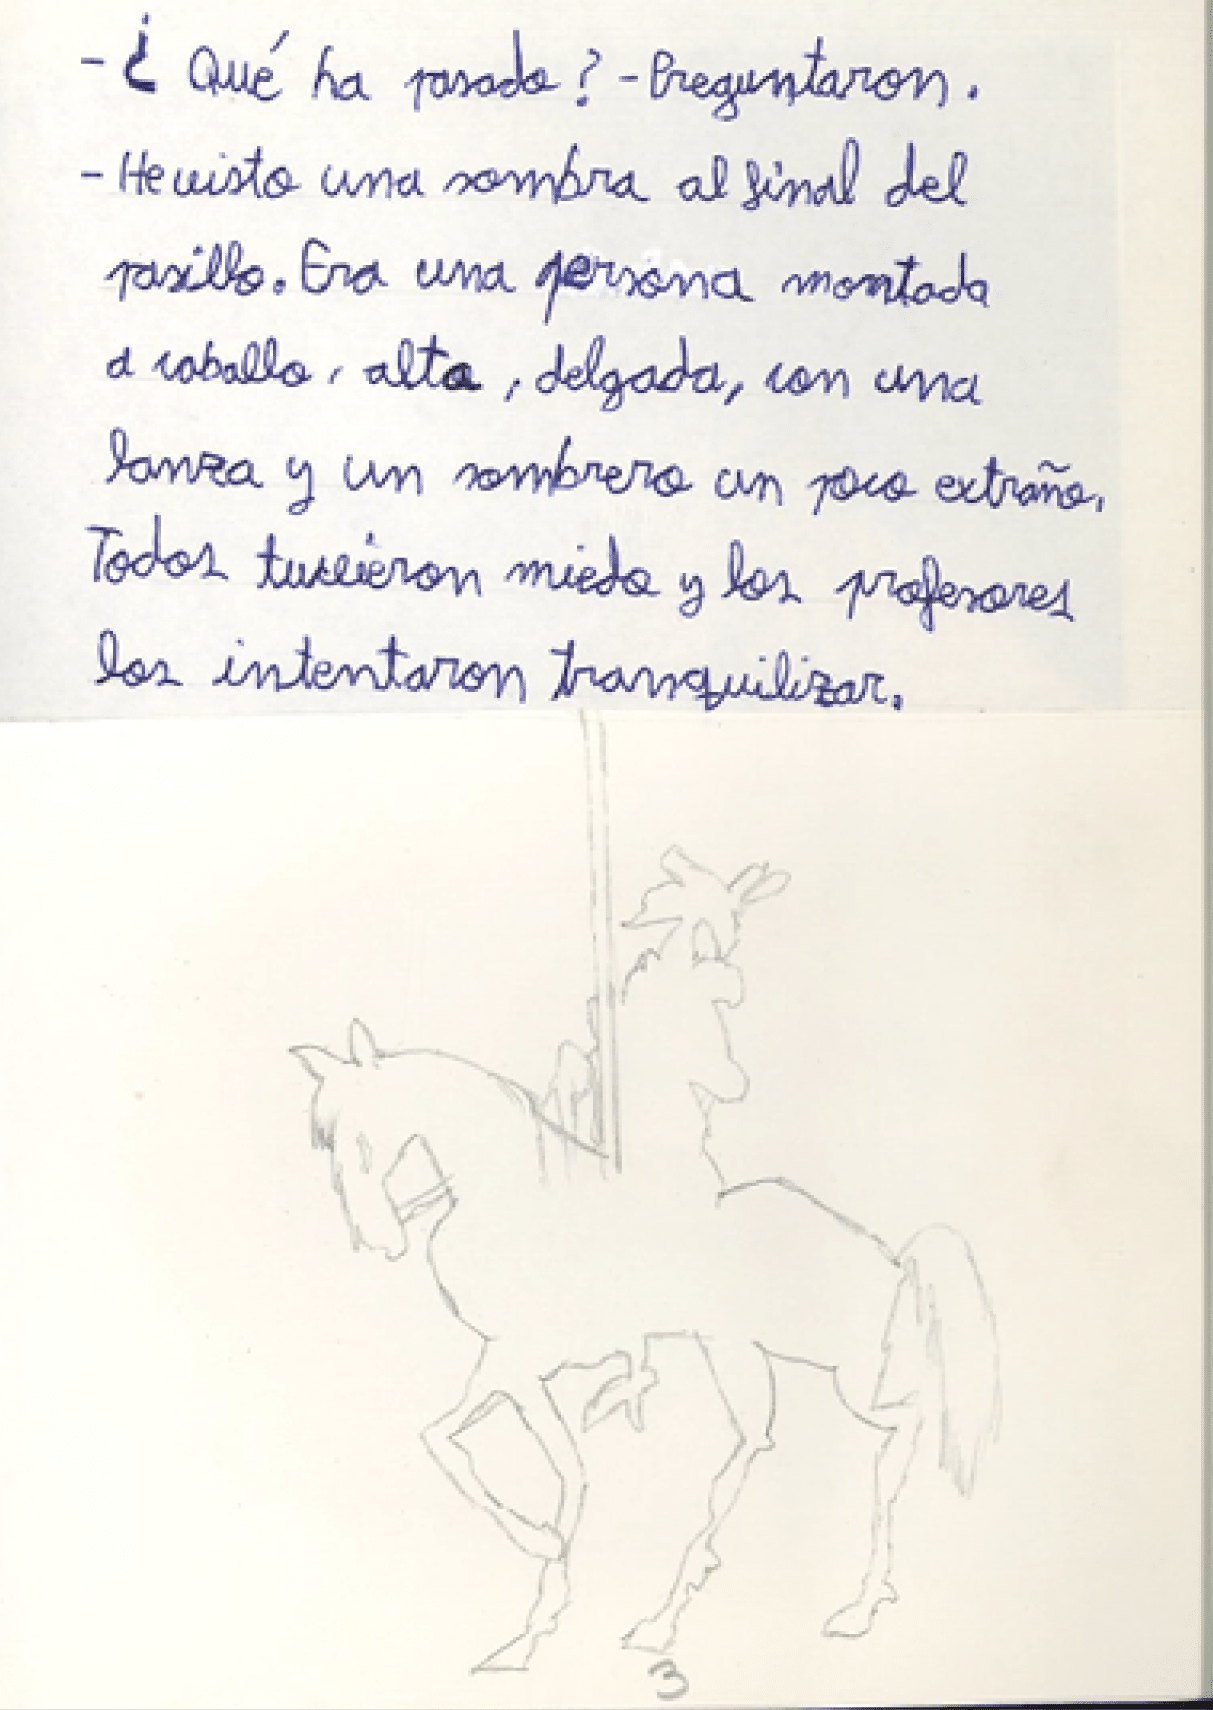 - ¿ Qué ha pasado? - Preguntaron.
- He visto una sombra al final del
pasillo. Era una persona montada
a caballo, alta, delgada, con una
lanza y un sombrero un poco extraño.
Todos tuvieron miedo y los profesores
los intentaron tranquilizar.
3